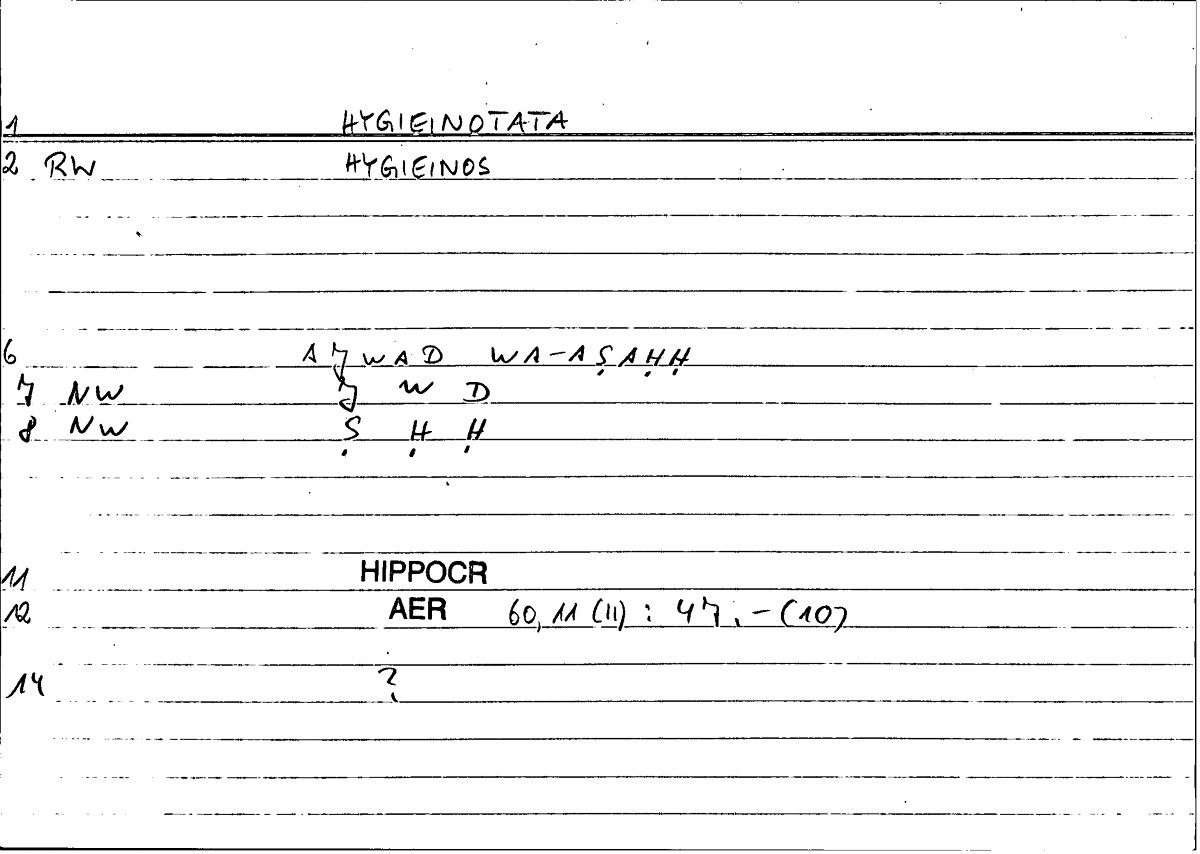 1 HYGIEINOTATA
2 RW HYGIEINOS
6 AJWAD WA-AṢAḤḤ
7 NW J W D
8 NW Ṣ Ḥ Ḥ
11 HIPPOCR
12 AER 60,11 (11) : 47.-(10)
14 ?